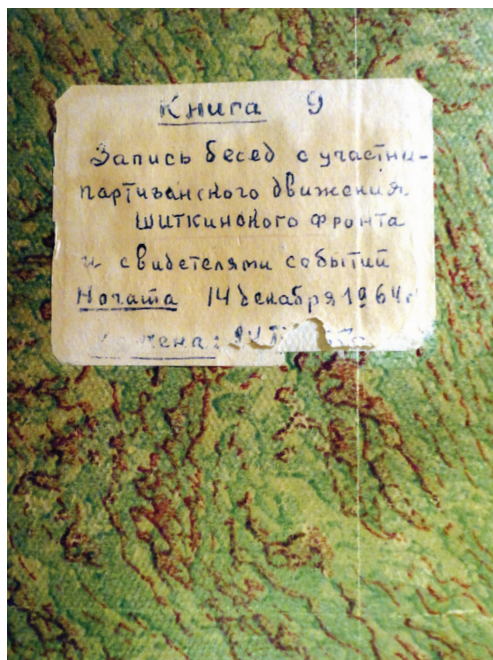 Книга 9
Запись бесед с участни-
партизанского движения
Шиткинского фронта
и свидетелями событий
Начата 14 декабря 1964 г